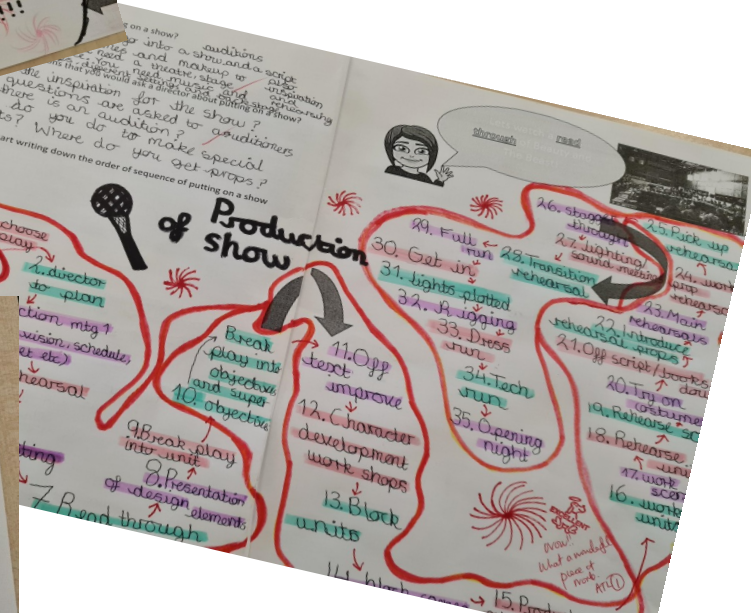 g on a show?
auditions
o into a show and a script
les and makeup to also
need a theatre, stage inspiration
You need music and and
is that you would ask a director about putting on a show?
rehearsing
the inspiration for the show?
questions are asked to auditioners
here is an audition?
do you do to make special
ts? Where do you get props?
art writing down the order of sequence of putting on a show
Production
of show
choose
play
2. director
to plan
ction mtg 1
vision, schedule,
et etc)
hearsal
ting
7. Read through
8. Presentation
of design elements
9. Break play
into unit
10. objective
Break
play into
objective
and super
11. Off
text
improve
12. Character
development
work shops
13. Block
units
15. Prod
16. work
units
17. work
scen
18. Rehearse
uni
19. Rehearse sc
20. Try on
costume
21. Off script/books
dow
22. Introduce
rehearsal props
23. Main
rehearsals
24. work
prop
rehears
25. Pick up
rehearsa
26. Stagger
through
27. lighting/
sound meeting
28. Transition
rehearsal
29. Full
run
30. Get in
31. lights plotted
32. Rigging
33. Dress
run
34. Tech
run
35. Opening
night
read
through
Wow!!
What a wonderful
piece of
work.
ATL①